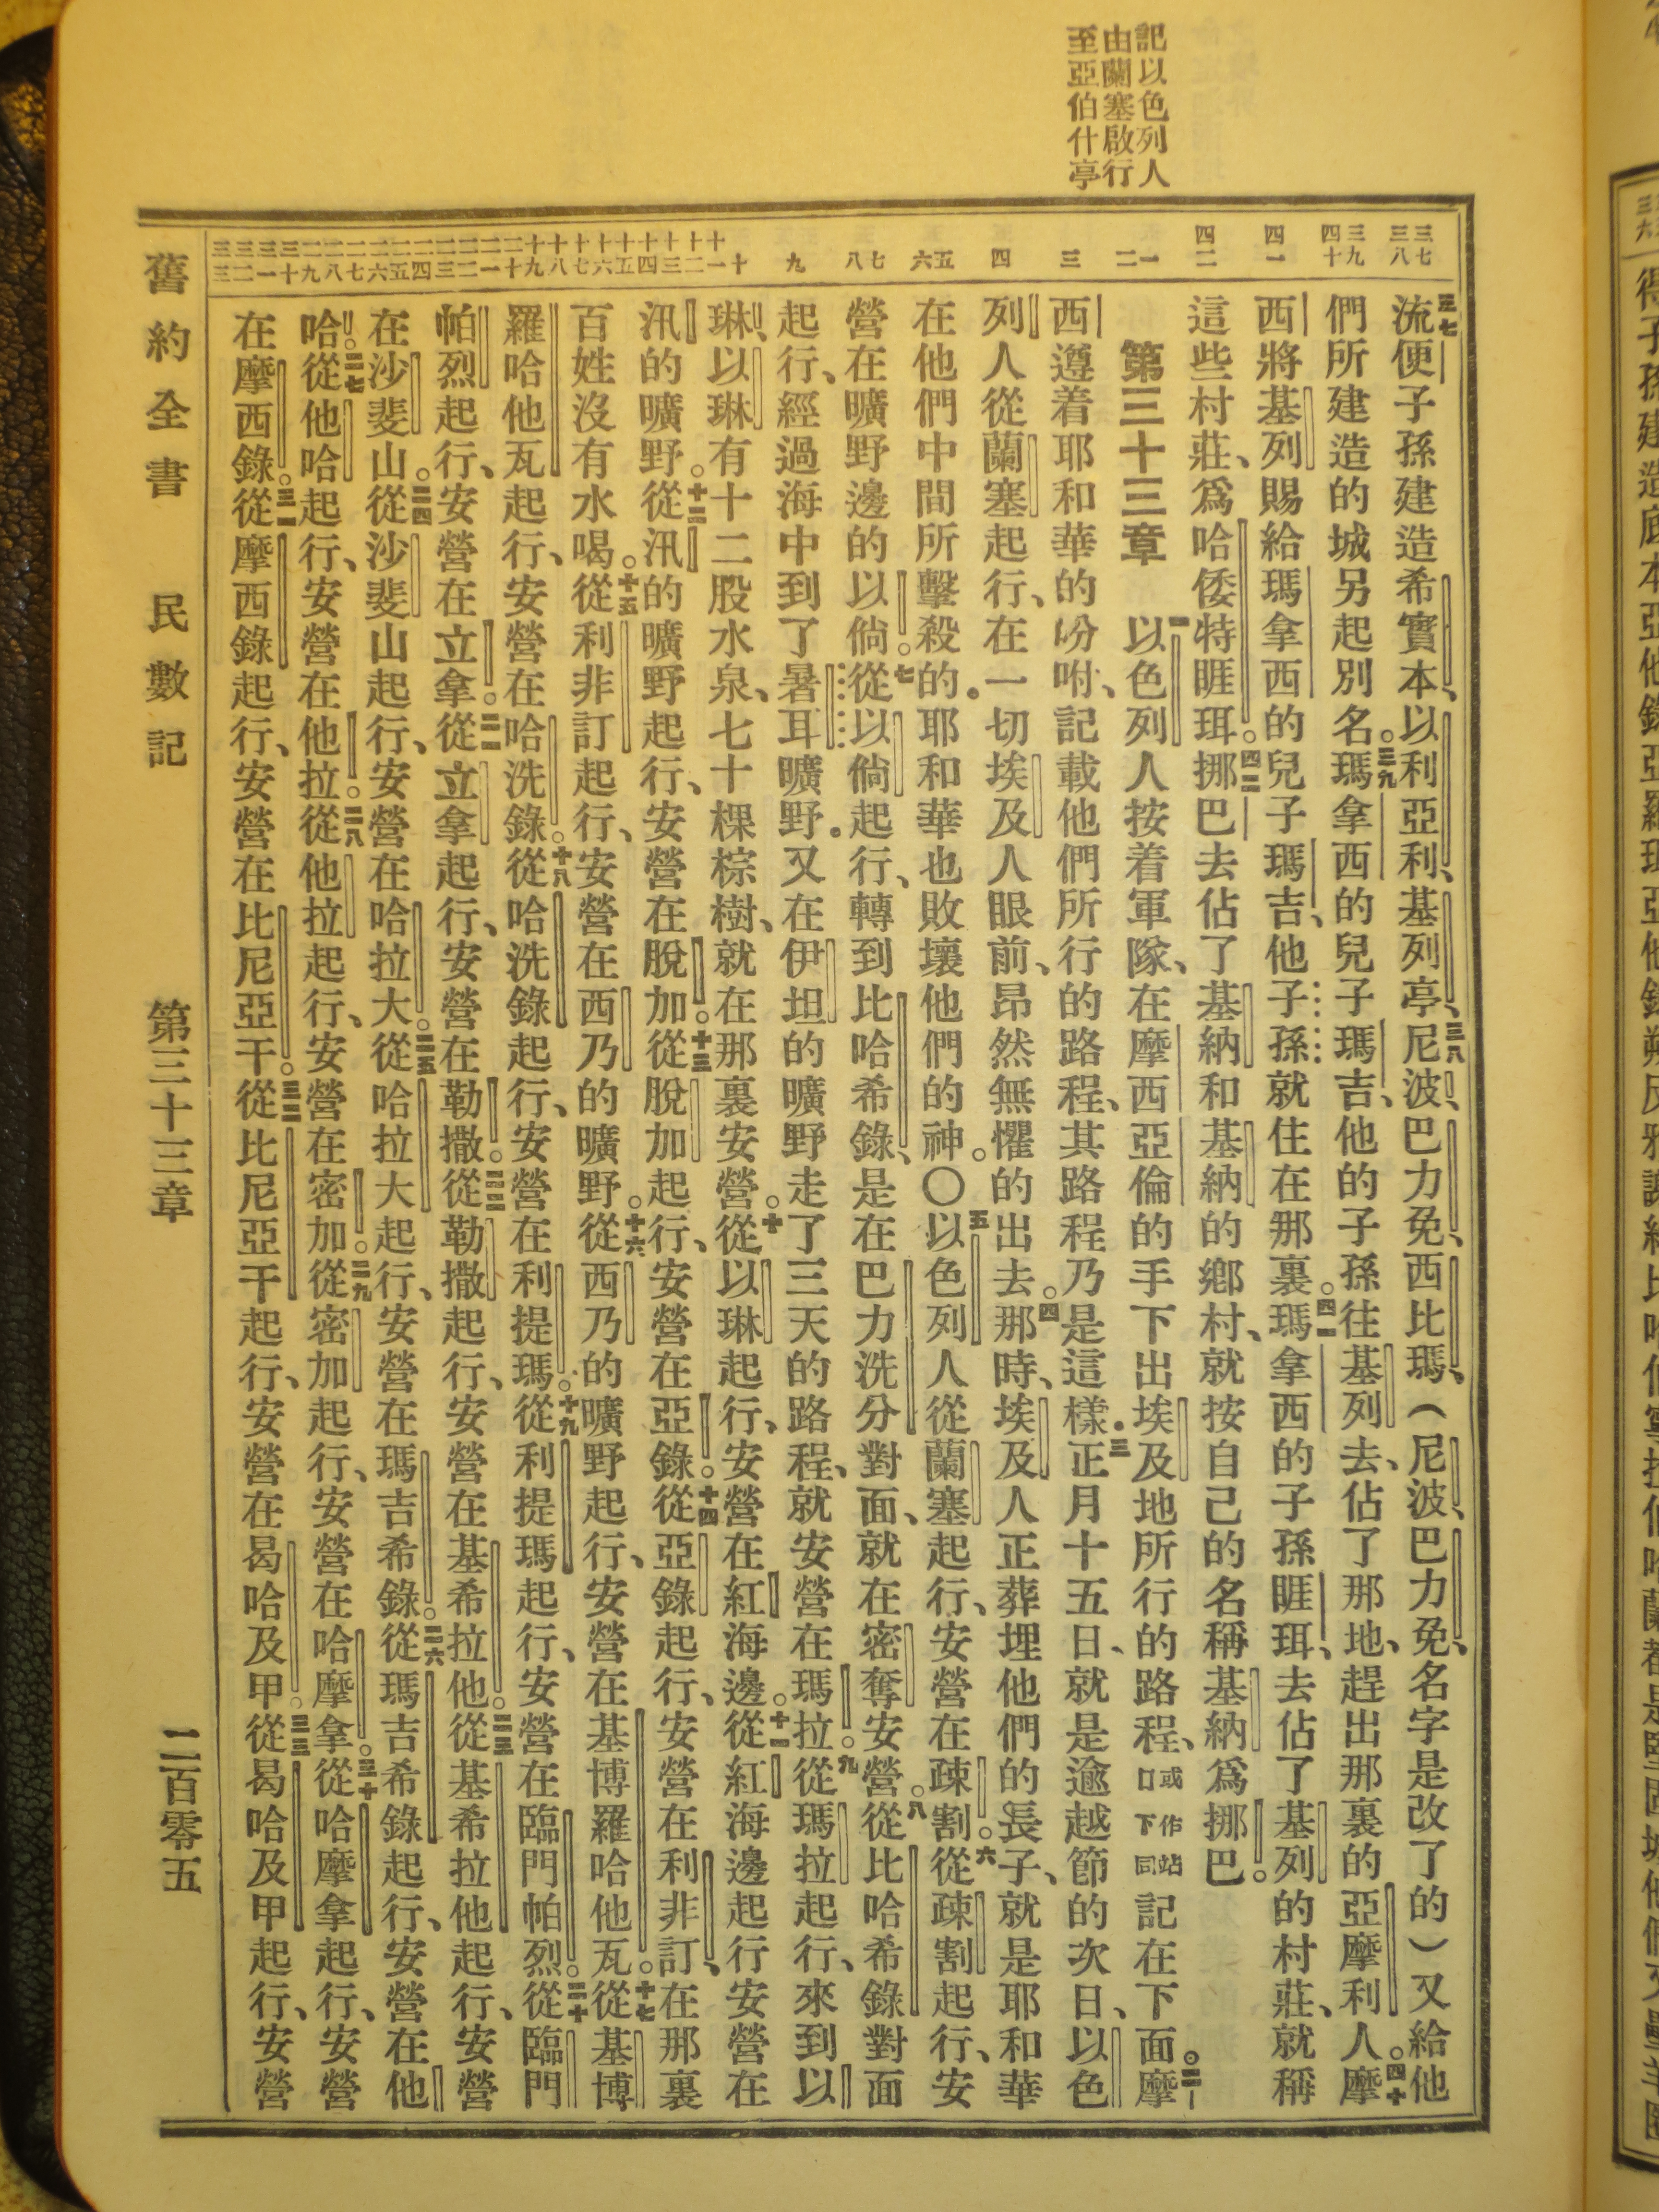 記以色列人
由蘭塞啟行
至亞伯什亭
三七 三八
三九 四十
四一
四二
一 二
三
四
五 六
七 八
九
十
十一 十二
十三 十四
十五 十六
十七 十八
十九 二十
二一 二二
二三 二四
二五 二六
二七 二八
二九 三十
三一 三二 三三
三七流便子孫建造希實本、以利亞利、基列亭、三八尼波、巴力免、西比瑪、(尼波、巴力免、名字是改了的)又給他
們所建造的城另起別名。三九瑪拿西的兒子瑪吉、他的子孫往基列去、佔了那地、趕出那裏的亞摩利人。四十摩
西將基列賜給瑪拿西的兒子瑪吉、他子孫就住在那裏。四一瑪拿西的子孫睚珥、去佔了基列的村莊、就稱
這些村莊、爲哈倭特睚珥。四二挪巴去佔了基納和基納的鄉村、就按自己的名稱基納爲挪巴。
第三十三章 一以色列人按着軍隊、在摩西亞倫的手下出埃及地所行的路程、或作站口下同記在下面。二摩
西遵着耶和華的吩咐、記載他們所行的路程、其路程乃是這樣.三正月十五日、就是逾越節的次日、以色
列人從蘭塞起行、在一切埃及人眼前、昂然無懼的出去。四那時、埃及人正葬埋他們的長子、就是耶和華
在他們中間所擊殺的.耶和華也敗壞他們的神。〇五以色列人從蘭塞起行、安營在疎割。六從疎割起行、安
營在曠野邊的以倘。七從以倘起行、轉到比哈希錄、是在巴力洗分對面、就在密奪安營。八從比哈希錄對面
起行、經過海中到了暑耳曠野.又在伊坦的曠野走了三天的路程、就安營在瑪拉。九從瑪拉起行、來到以
琳、以琳有十二股水泉、七十棵棕樹、就在那裏安營。十從以琳起行、安營在紅海邊。十一從紅海邊起行安營在
汛的曠野。十二從汛的曠野起行、安營在脫加。十三從脫加起行、安營在亞錄。十四從亞錄起行、安營在利非訂、在那裏
百姓沒有水喝。十五從利非訂起行、安營在西乃的曠野。十六從西乃的曠野起行、安營在基博羅哈他瓦。十七從基博
羅哈他瓦起行、安營在哈洗錄。十八從哈洗錄起行、安營在利提瑪。十九從利提瑪起行、安營在臨門帕烈。二十從臨門
帕烈起行、安營在立拿。二一從立拿起行、安營在勒撒。二二從勒撒起行、安營在基希拉他。二三從基希拉他起行、安營
在沙斐山。二四從沙斐山起行、安營在哈拉大。二五從哈拉大起行、安營在瑪吉希錄。二六從瑪吉希錄起行、安營在他
哈。二七從他哈起行、安營在他拉。二八從他拉起行、安營在密加。二九從密加起行、安營在哈摩拿。三十從哈摩拿起行、安營
在摩西錄。三一從摩西錄起行、安營在比尼亞干。三二從比尼亞干起行、安營在曷哈及甲。三三從曷哈及甲起行、安營
舊約全書 民數記 第三十三章 二百零五